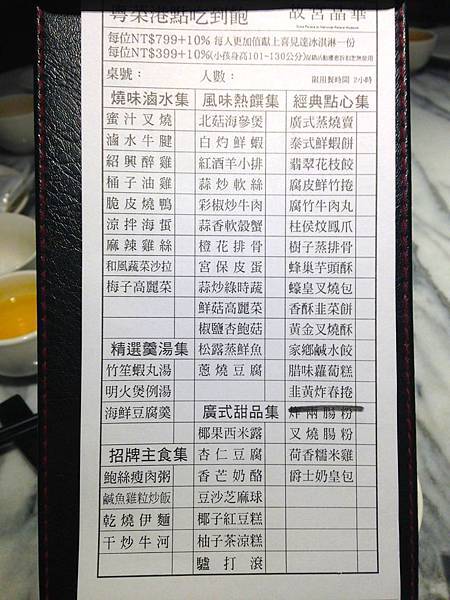 粵菜港點吃到飽
故宮晶華
每位NT$799+10% 每人更加值獻上喜見達冰淇淋一份
每位NT$399+10%(小孩身高101-130公分)
桌號：
人數：
限用餐時間 2小時
燒味滷水集
蜜汁叉燒
滷水牛腱
紹興醉雞
桶子油雞
脆皮燒鴨
涼拌海蜇
麻辣雞絲
和風蔬菜沙拉
梅子高麗菜
精選羹湯集
竹笙蝦丸湯
明火煲例湯
海鮮豆腐羹
招牌主食集
鮑絲瘦肉粥
鹹魚雞粒炒飯
乾燒伊麵
干炒牛河
風味熱饌集
北菇海參煲
白灼鮮蝦
紅酒羊小排
蒜炒軟絲
彩椒炒牛肉
蒜香軟殼蟹
橙花排骨
宮保皮蛋
蒜炒綠時蔬
鮮菇高麗菜
椒鹽杏鮑菇
松露蒸鮮魚
蔥燒豆腐
廣式甜品集
椰果西米露
杏仁豆腐
香芒奶酪
豆沙芝麻球
椰子紅豆糕
柚子茶涼糕
驢打滾
經典點心集
廣式蒸燒賣
泰式鮮蝦餅
翡翠花枝餃
腐皮鮮竹捲
腐竹牛肉丸
柱侯炆鳳爪
樹子蒸排骨
蜂巢芋頭酥
蠔皇叉燒包
香酥韭菜餅
黃金叉燒酥
家鄉鹹水餃
腊味蘿蔔糕
韭黃炸春捲
炸兩腸粉
叉燒腸粉
荷香糯米雞
爵士奶皇包